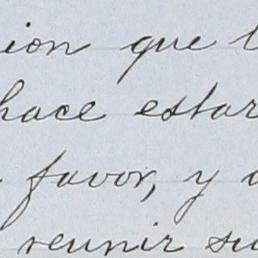 ion que l
hace estar
favor, y
reunir su